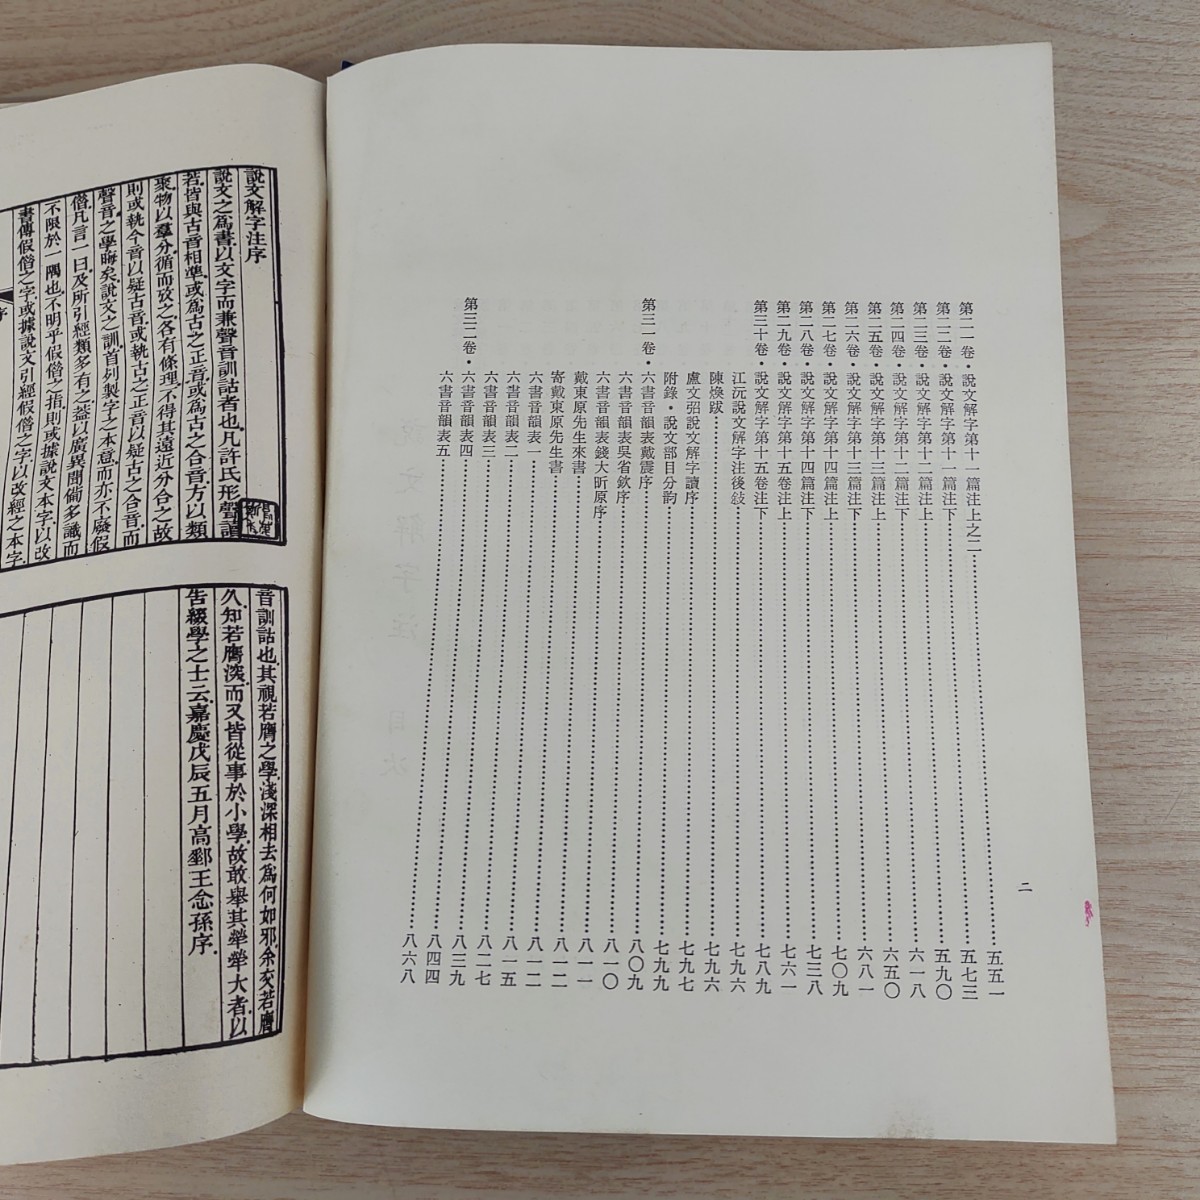 第二一卷・說文解字第十一篇注上之二……五五一
第二二卷・說文解字第十一篇注下……五七三
第二三卷・說文解字第十二篇注上……五九〇
第二四卷・說文解字第十二篇注下……六一八
第二五卷・說文解字第十三篇注上……六五〇
第二六卷・說文解字第十三篇注下……六八一
第二七卷・說文解字第十四篇注上……七〇九
第二八卷・說文解字第十四篇注下……七三八
第二九卷・說文解字第十五卷注上……七六一
第三十卷・說文解字第十五卷注下……七八九
江沅說文解字注後敍……七九六
陳煥跋……七九六
盧文弨說文解字讀序……七九七
附錄・說文部目分韵……七九九
第三一卷・六書音韻表戴震序……八〇九
六書音韻表吳省欽序……八一〇
六書音韻表錢大昕原序……八一一
戴東原先生來書……八一二
寄戴東原先生書……八一二
六書音韻表一……八一五
六書音韻表二……八二七
六書音韻表三……八三九
第三二卷・六書音韻表四……八四四
六書音韻表五……八六八
二
說文解字注序
說文之為書以文字而兼聲音訓詁者也凡許氏形聲讀
若皆與古音相準或為古之正音或為古之合音方以類
聚物以羣分循而攷之各有條理不得其遠近分合之故
則或執今音以疑古音或執古之正音以疑古之合音而
聲音之學晦矣說文之訓首列製字之本意而亦不廢假
借凡言一曰及所引經類多有之蓋以廣異聞備多識而
不限於一隅也不明乎假借之指則或據說文本字以改
書傳假借之字或據說文引經假借之字以改經之本字
序
音訓詁也其視若膺之學淺深相去為何如邪余交若膺
久知若膺深而又皆從事於小學故敢舉其犖犖大者以
告綴學之士云嘉慶戊辰五月高郵王念孫序